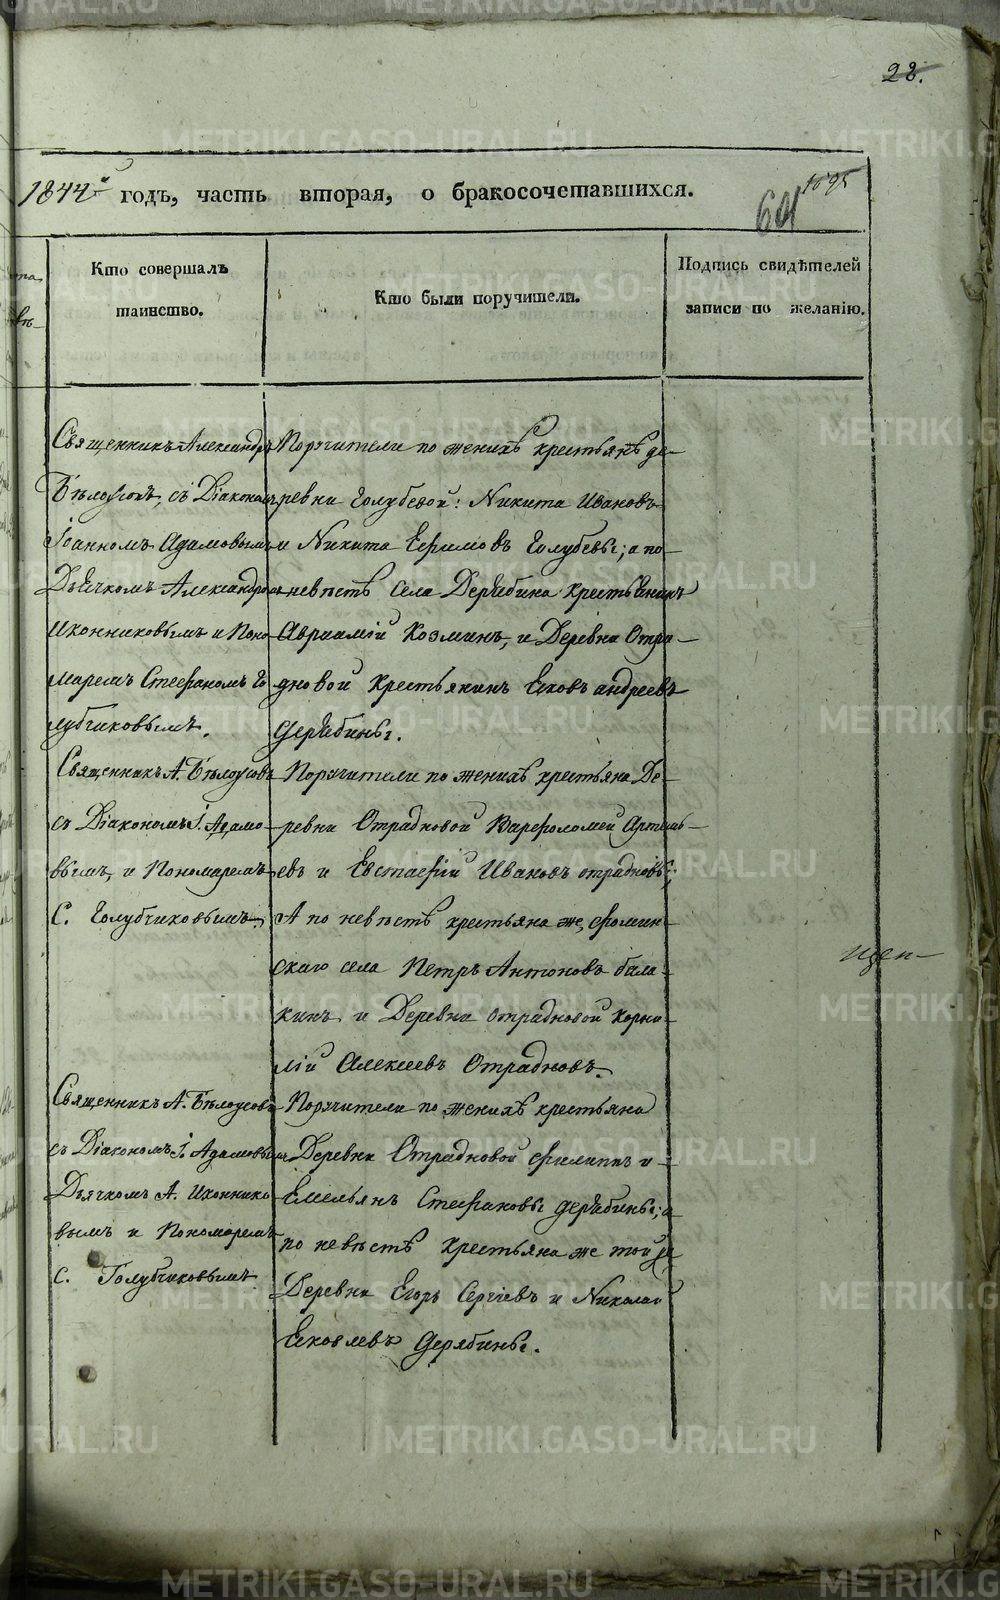 22.
1844 годъ, часть вторая, о бракосочетавшихся.
Кто совершалъ
таинство.
Кто были поручители.
Подпись свидѣтелей
записи по желанію.
Священникъ Александръ
Бѣлоусовъ, съ Діакономъ
Іоанномъ Адамовымъ и
Дьячкомъ Александромъ
Иконниковымъ и Поно-
маремъ Стефаномъ Го-
лубчиковымъ.
Поручители по женихѣ крестьянѣ де-
ревни Голубевой: Никита Ивановъ
и Никита Ефимовъ Голубевы; а по
невѣстѣ села Дерябина крестьянинъ
Авраамій Козминъ, и Деревни Отра-
дновой Крестьянинъ Яковъ Андреевъ
Дерябины.
Священникъ А. Бѣлоусовъ
съ Діакономъ І. Адамо-
вымъ, и Пономаремъ
С. Голубчиковымъ.
Поручители по женихѣ крестьяна Де-
ревни Отрадновой Варфоломей Артемь-
евъ и Евстафій Ивановъ Отрадновы;
А по невѣстѣ крестьяна же, Фомин-
скаго села Петръ Антоновъ Бала-
кинъ и Деревни Отрадновой Корни-
лій Алексеевъ Отрадновъ.
Священникъ А. Бѣлоусовъ
съ Діакономъ І. Адамовымъ
Дьячкомъ А. Иконнико-
вымъ и Пономаремъ
С. Голубчиковымъ
Поручители по женихѣ крестьяна
Деревни Отрадновой Филиппъ и
Емельянъ Стефановы Дерябины; а
по невѣстѣ крестьяна же той же
Деревни Егоръ Сергіевъ и Николай
Яковлевъ Дерябины.
METRIKI.GASO-URAL.RU